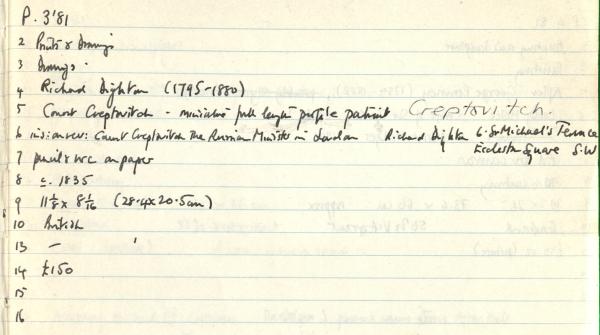 P. 3'81
2 Prints & Drawings
3 Drawings.
4 Richard Dighton (1795-1880)
5 Count Creptovitch - miniature full length profile portrait Creptovitch.
6 inscr. rev: Count Creptovitch The Russian Minister in London Richard Dighton 6. St Michael's Terrace
Eccleston Square S.W
7 pencil & w.c on paper
8 c. 1835
9 11 1/8 x 8 1/16 (28.4 x 20.5cm)
10 British
13 —
14 £150
15
16